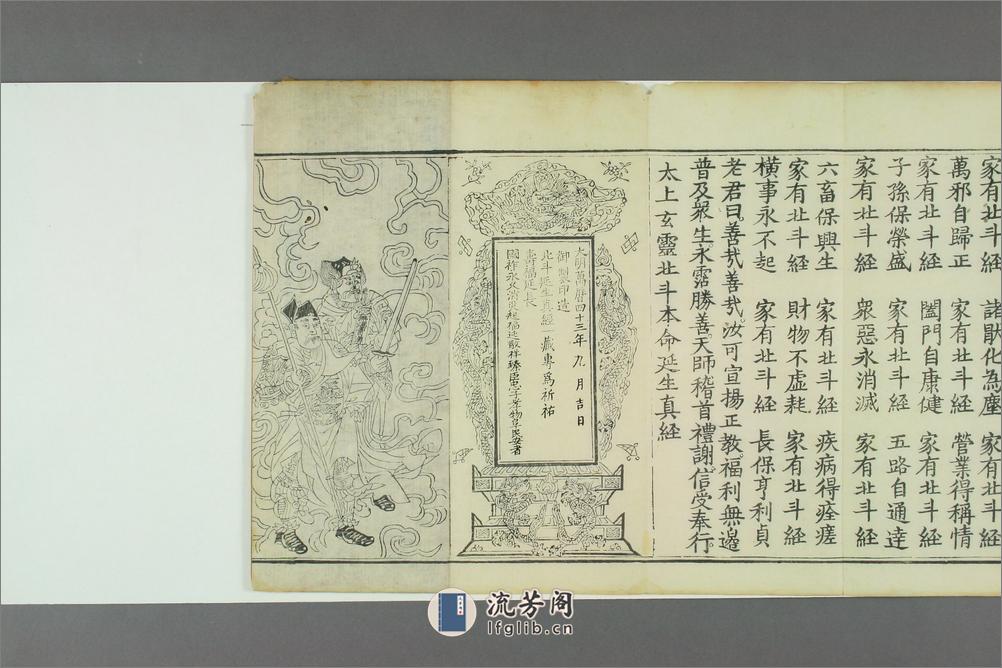 家有北斗經 諸猒化為塵 家有北斗經
萬邪自歸正 家有北斗經 營業得稱情
家有北斗經 闔門自康健 家有北斗經
子孫保榮盛 家有北斗經 五路自通達
家有北斗經 衆惡永消滅 家有北斗經
六畜保興生 家有北斗經 疾病得痊瘥
家有北斗經 財物不虚耗 家有北斗經
橫事永不起 家有北斗經 長保亨利貞
老君曰善㢤善㢤汝可宣揚正教福利無邊
普及衆生永霑勝善天師稽首禮謝信受奉行
太上玄靈北斗本命延生真經
大明萬曆四十三年九月吉日
御製印造
北斗延生真經一藏專為祈祐
壽福延長
國祚永
流芳阁
lfglib.cn